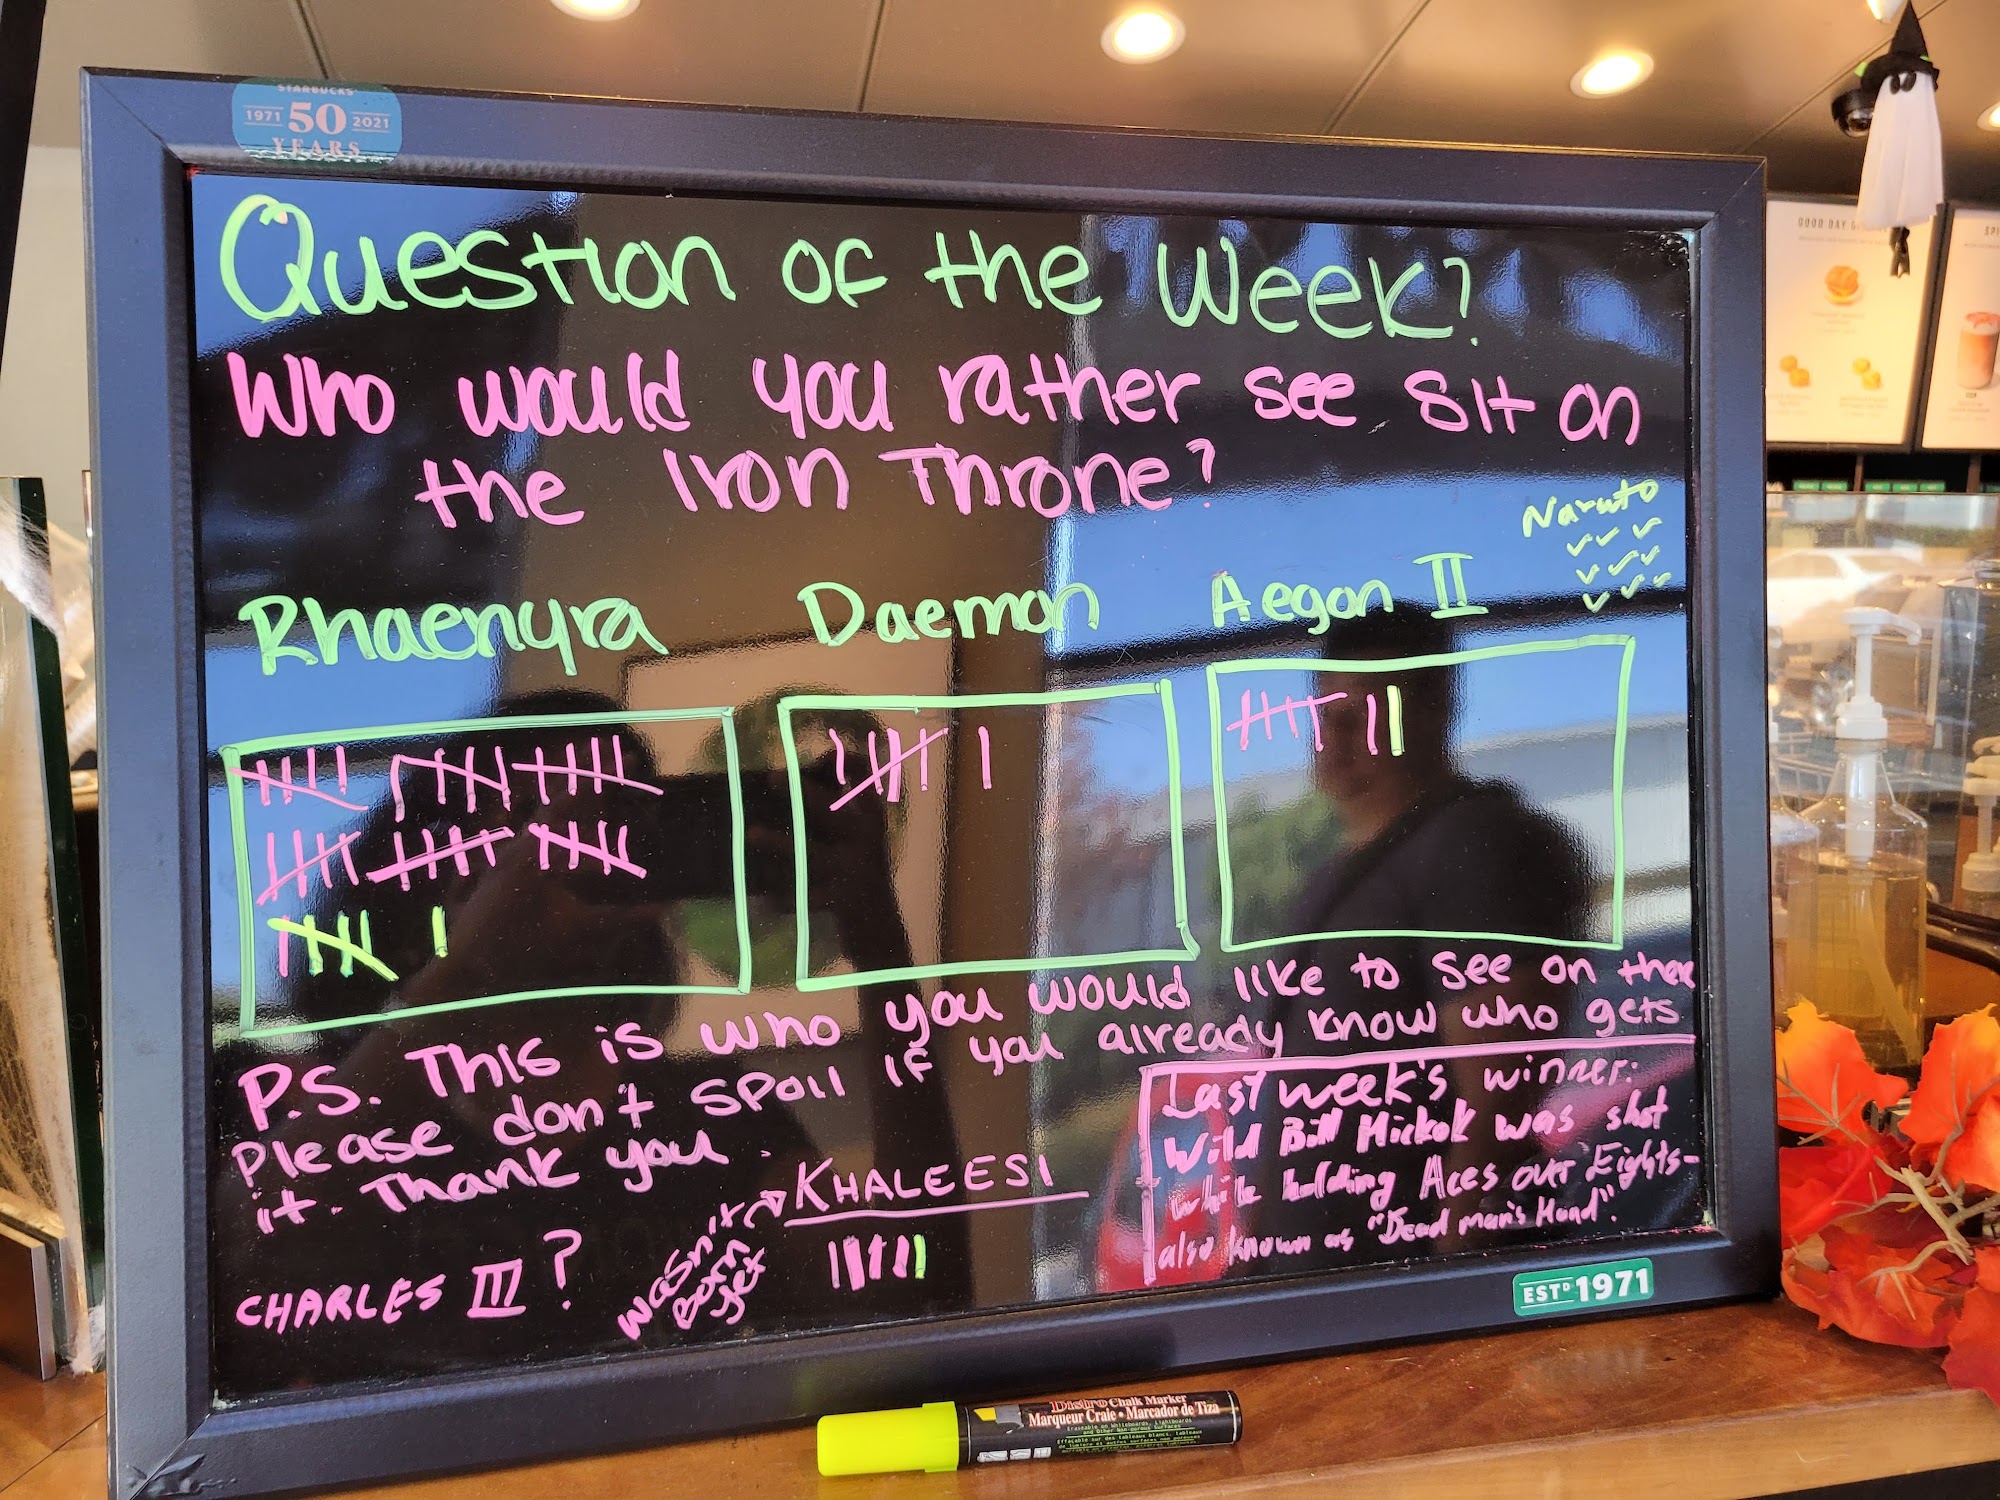 STARBUCKS
1971 50 2021
YEARS
Question of the Week?
Who would you rather see sit on
the Iron Throne?
Naruto
Rhaenyra Daemon Aegon II
P.S. This is who you would like to see on there
Please don't spoil if you already know who gets
it. Thank you.
Last week's winner:
Wild Bill Hickok was shot
while holding Aces over Eights-
also known as "Dead man's Hand".
KHALEESI
wasn't
Born
yet
CHARLES III ?
ESTD 1971
Bistro Chalk Marker
Marqueur Craie • Marcador de Tiza
GOOD DAY